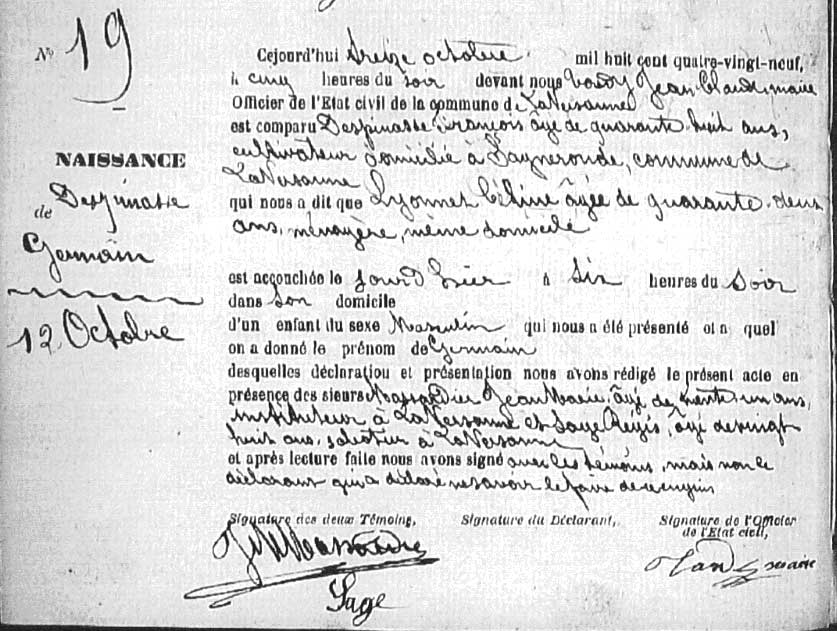 N° 19
NAISSANCE
de Despinasse
Germain
12 Octobre
Cejourd'hui treize octobre mil huit cent quatre-vingt-neuf,
à cinq heures du soir devant nous Jean Claude, maire
Officier de l'Etat civil de la commune de La Versanne
est comparu Despinasse François âgé de quarante huit ans,
cultivateur domicilié à commune de
La Versanne
qui nous a dit que Lyonnet âgée de quarante-deux
ans, ménagère, même domicile
est accouchée le jour d'hier à six heures du soir
dans son domicile
d'un enfant du sexe Masculin qui nous a été présenté et a quel
on a donné le prénom de Germain
desquelles déclaration et présentation nous avons rédigé le présent acte en
présence des sieurs Massardier Jean Marie, âgé de trente-un ans,
instituteur à La Versanne et Sage Régis, âgé de vingt
huit ans, à La Versanne
et après lecture faite nous avons signé avec les témoins, mais non le
déclarant qui a déclaré ne savoir le faire de ce enquis
Signature des deux Témoins, Signature du Déclarant, Signature de l'Officier
de l'Etat civil,
JM Massardier
maire
Sage